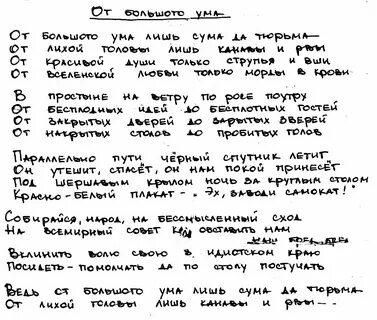 От большого ума
От большого ума лишь сума да тюрьма
От лихой головы лишь канавы и рвы
От красивой души только струпья и вши
От вселенской любви только морды в крови
В простыне на ветру по росе поутру
От бесплодных идей до бесплотных гостей
От закрытых дверей до зарытых зверей
От накрытых столов до пробитых голов
Параллельно пути чёрный спутник летит
Он утешит, спасёт, он нам покой принесёт
Под шершавым крылом ночь за круглым столом
Красно-белый плакат - "Эх, заводи самокат!"
Собирайся, народ, на бессмысленный сход
На всемирный совет как обставить нам
наш
Вклинить волю свою в идиотском краю
Посидеть-помолчать да по столу постучать
Ведь от большого ума лишь сума да тюрьма
От лихой головы лишь канавы и рвы...